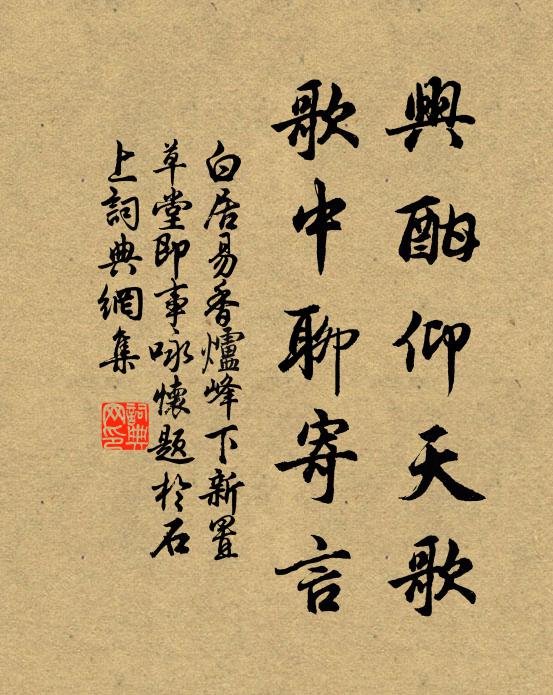 興酣仰天歌
歌中聊寄言
白居易香爐峰下新置
草堂即事咏懷題於石
上詞典網集
詞典网印